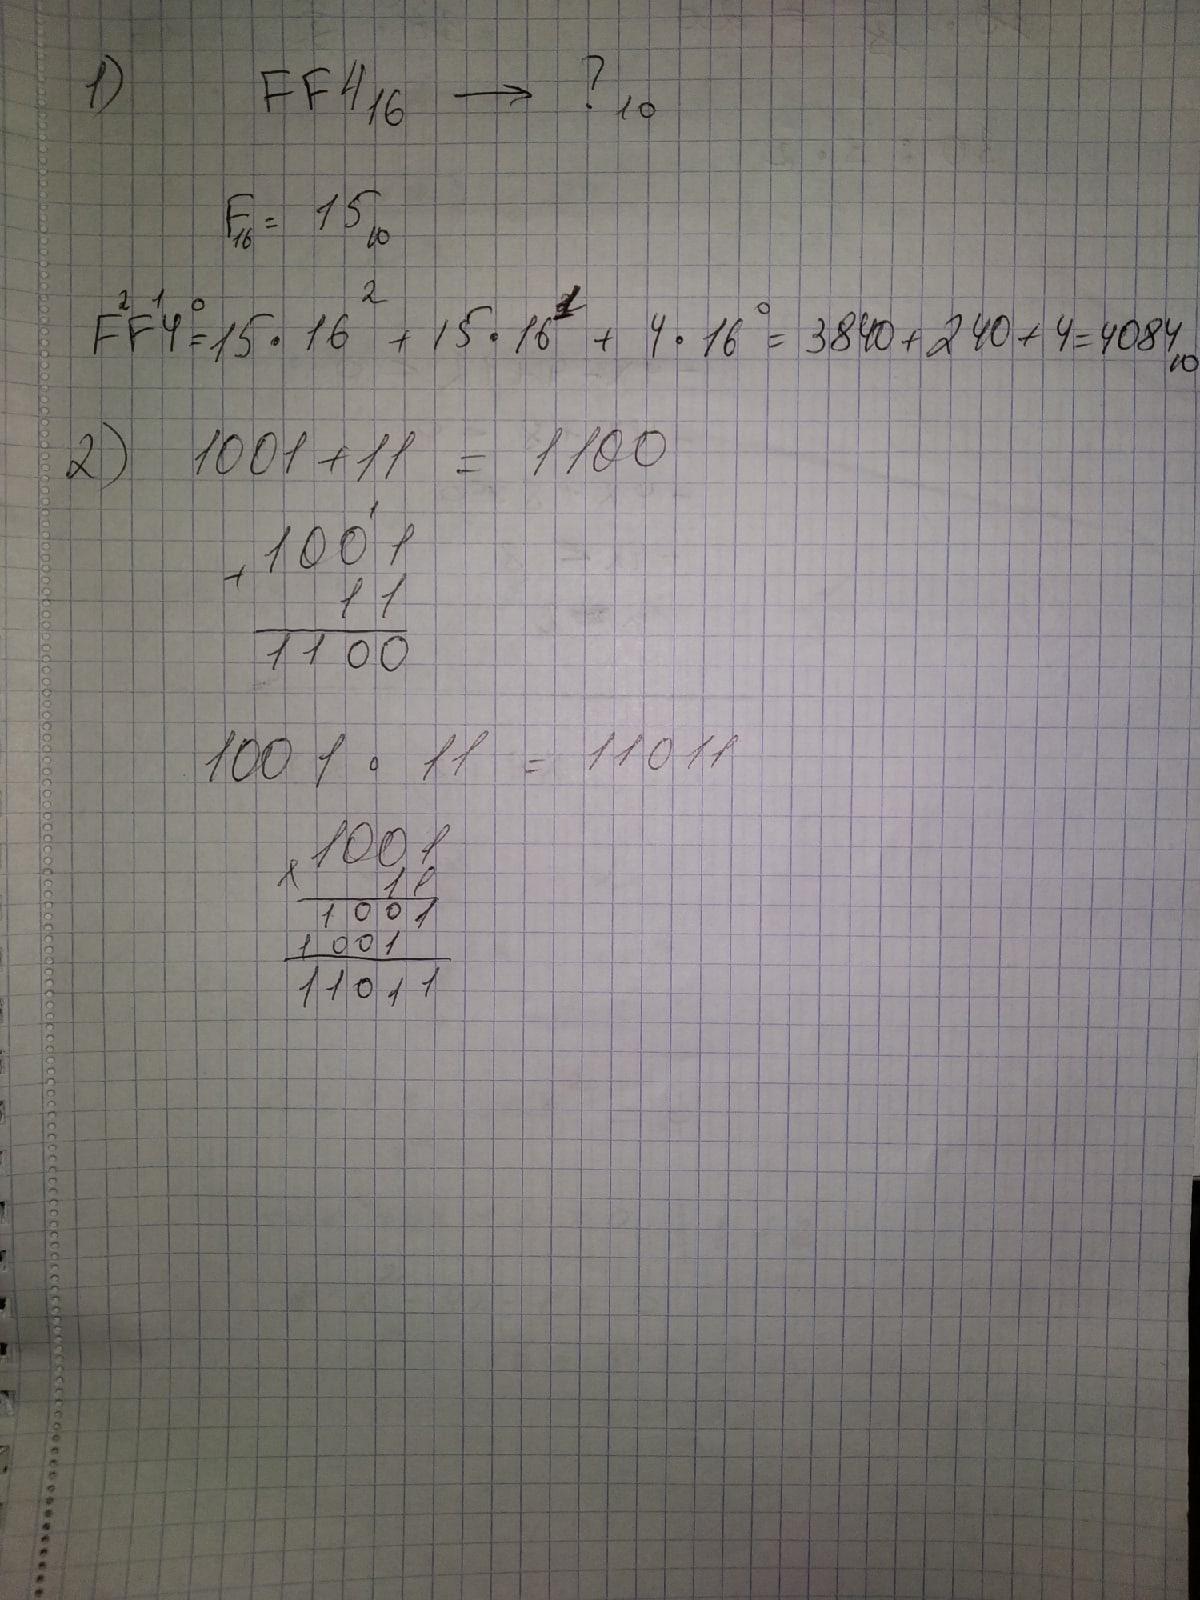 1) FF4₁₆ → ?₁₀
F₁₆ = 15₁₀
F²F¹4⁰ = 15 · 16² + 15 · 16¹ + 4 · 16⁰ = 3840 + 240 + 4 = 4084₁₀
2) 1001 + 11 = 1100
1
+ 1001
11
1100
1001 · 11 = 11011
x 1001
11
1001
1001
11011